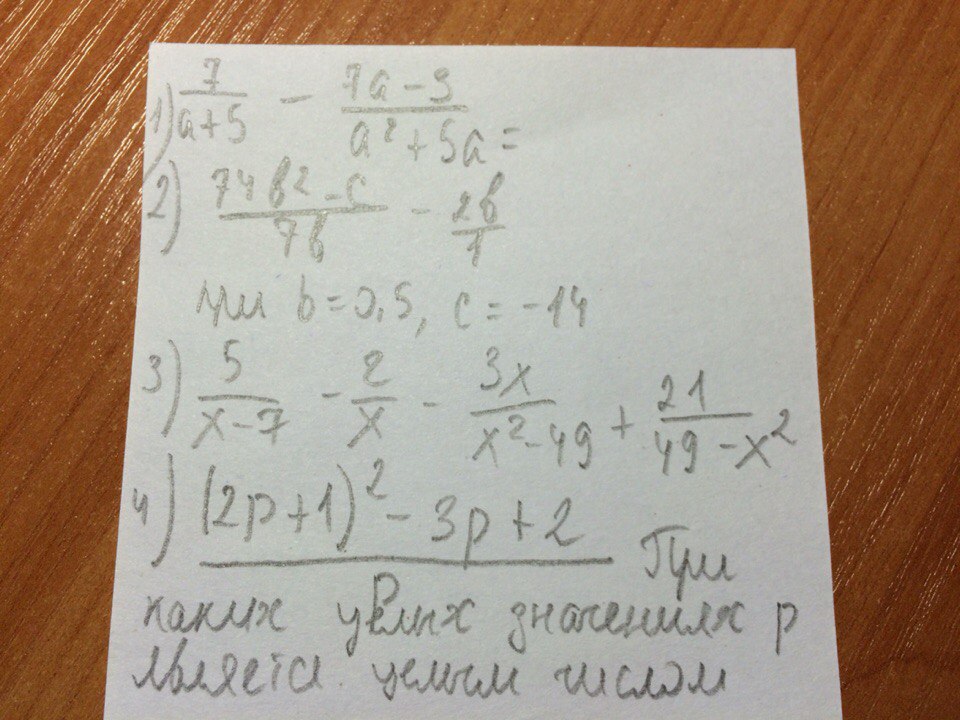 1) 7/(a+5) - (7a-3)/(a²+5a) =
2) (74b²-c)/(7b) - 2b/1
при b=0,5, c=-14
3) 5/(x-7) - 2/x - 3x/(x²-49) + 21/(49-x²)
4) ((2p+1)²-3p+2)/p При
каких целых значениях p
является целым числом